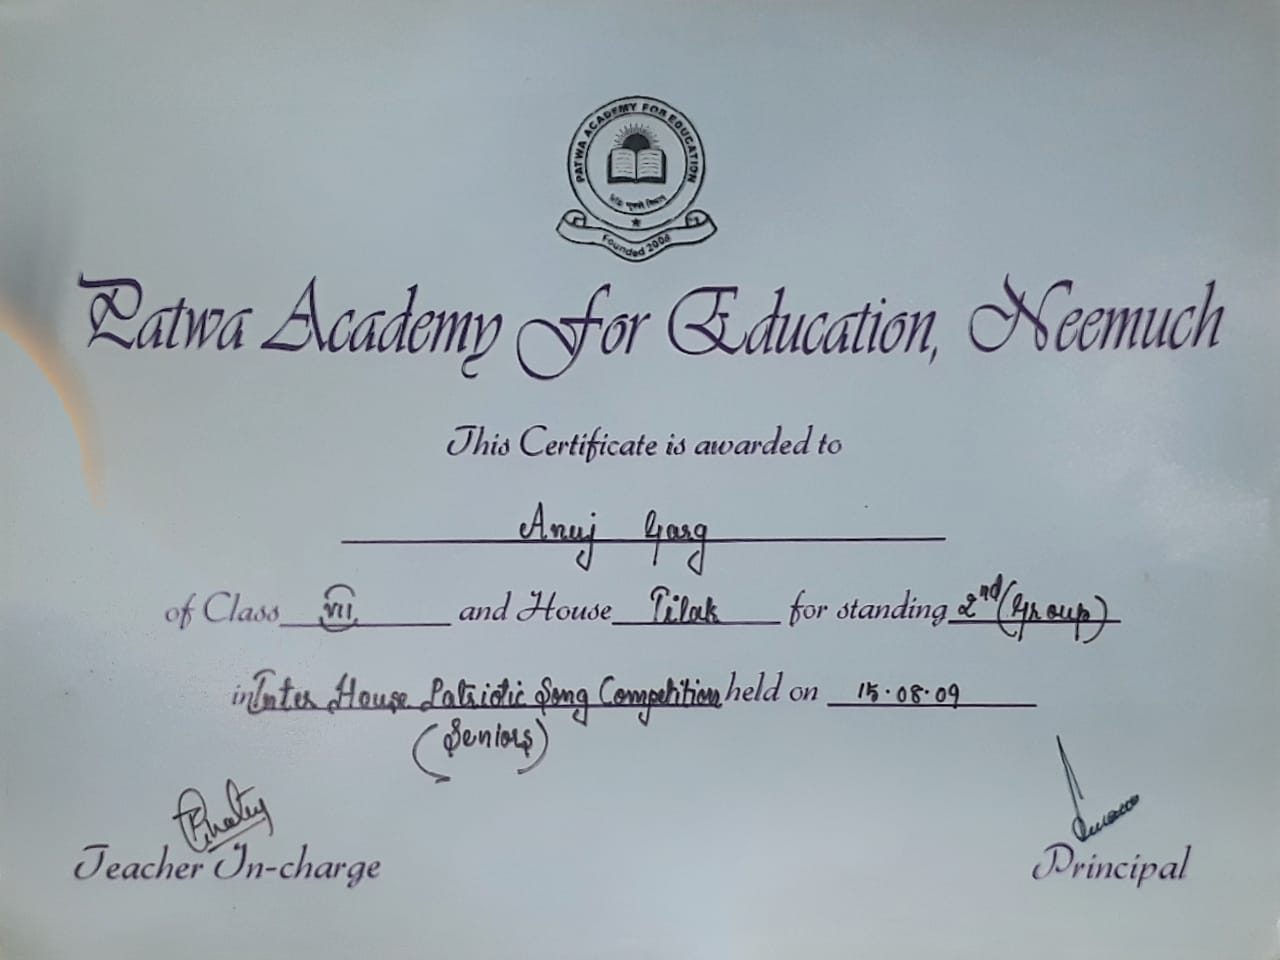 PATWA ACADEMY FOR EDUCATION
Founded 2008
Patwa Academy For Education, Neemuch
This Certificate is awarded to
Anuj Garg
of Class VII and House Tilak for standing 2nd (Group)
in Inter House Patriotic Song Competition held on 15.08.09
(Seniors)
Teacher In-charge
Principal